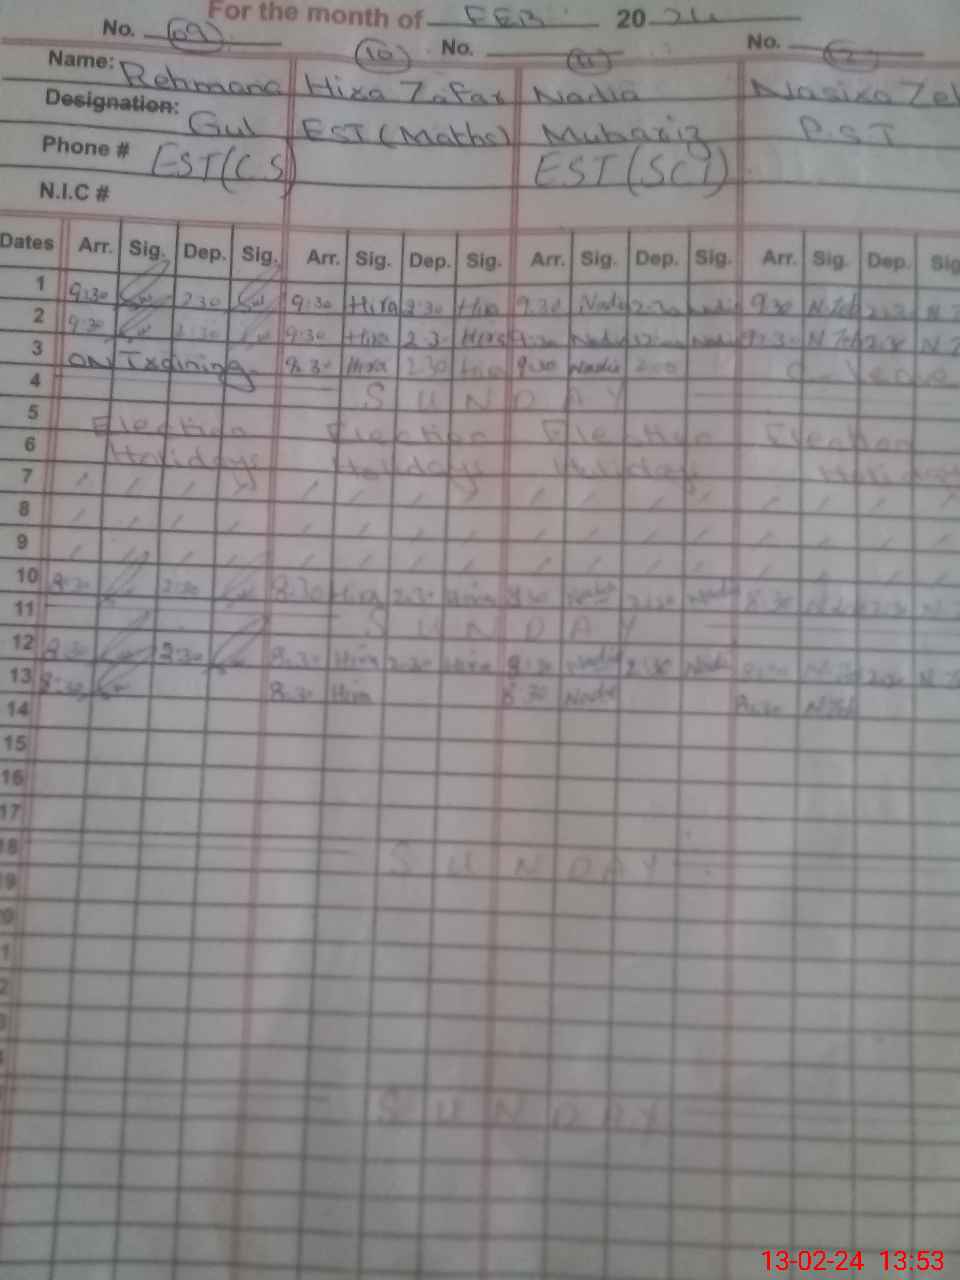 For the month of FEB 2024
No. 09 10 No. 11 No. 12
Name: Rehmana Hira Zafar Nadia Nasira Zeh
Designation: Gul EST (Maths) Mubariz P.S.T
Phone # EST(CS) EST(SCI)
N.I.C #
Dates Arr. Sig. Dep. Sig. Arr. Sig. Dep. Sig. Arr. Sig. Dep. Sig. Arr. Sig. Dep. Sig
1 9:30 2:30 9:30 Hira 2:30 Hira 9:30 Nadia 2:30 Nadia 9:30 N Zeh
2 9:30 2:30 9:30 Hira 2:30 Hira Nadia 9:30 N Zeh 2:30
3 ON Training 8:30 Hira 2:30 Hira 9:30 Nadia 2:00 Leave
4 SUNDAY
5 Election Election Election Election
6 Holidays Holidays Holidays Holidays
7
8
9
10 8:30 2:30 8:30 Hira 2:30 Hira 8:30 Nadia 2:30 Nadia 8:30
11 SUNDAY
12 8:30 2:30 8:30 Hira 2:30 Hira 8:30 Nadia 2:30 Nadia 2:30
13 8:30 8:30 Hira 8:30 Nadia 8:30 N Zeh
14
15
16
17
18 SUNDAY
19
SUNDAY
13-02-24 13:53